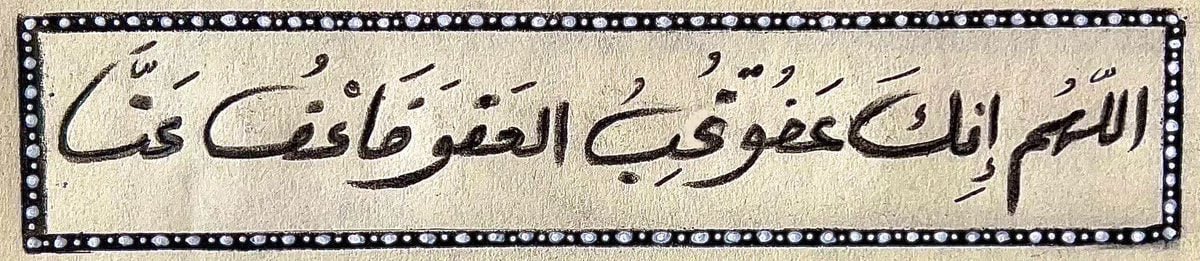 اللّهُم إِنِكَ عَفُوّ تُحِبُ العَفْوَ فَاعْفُ عَنَّا